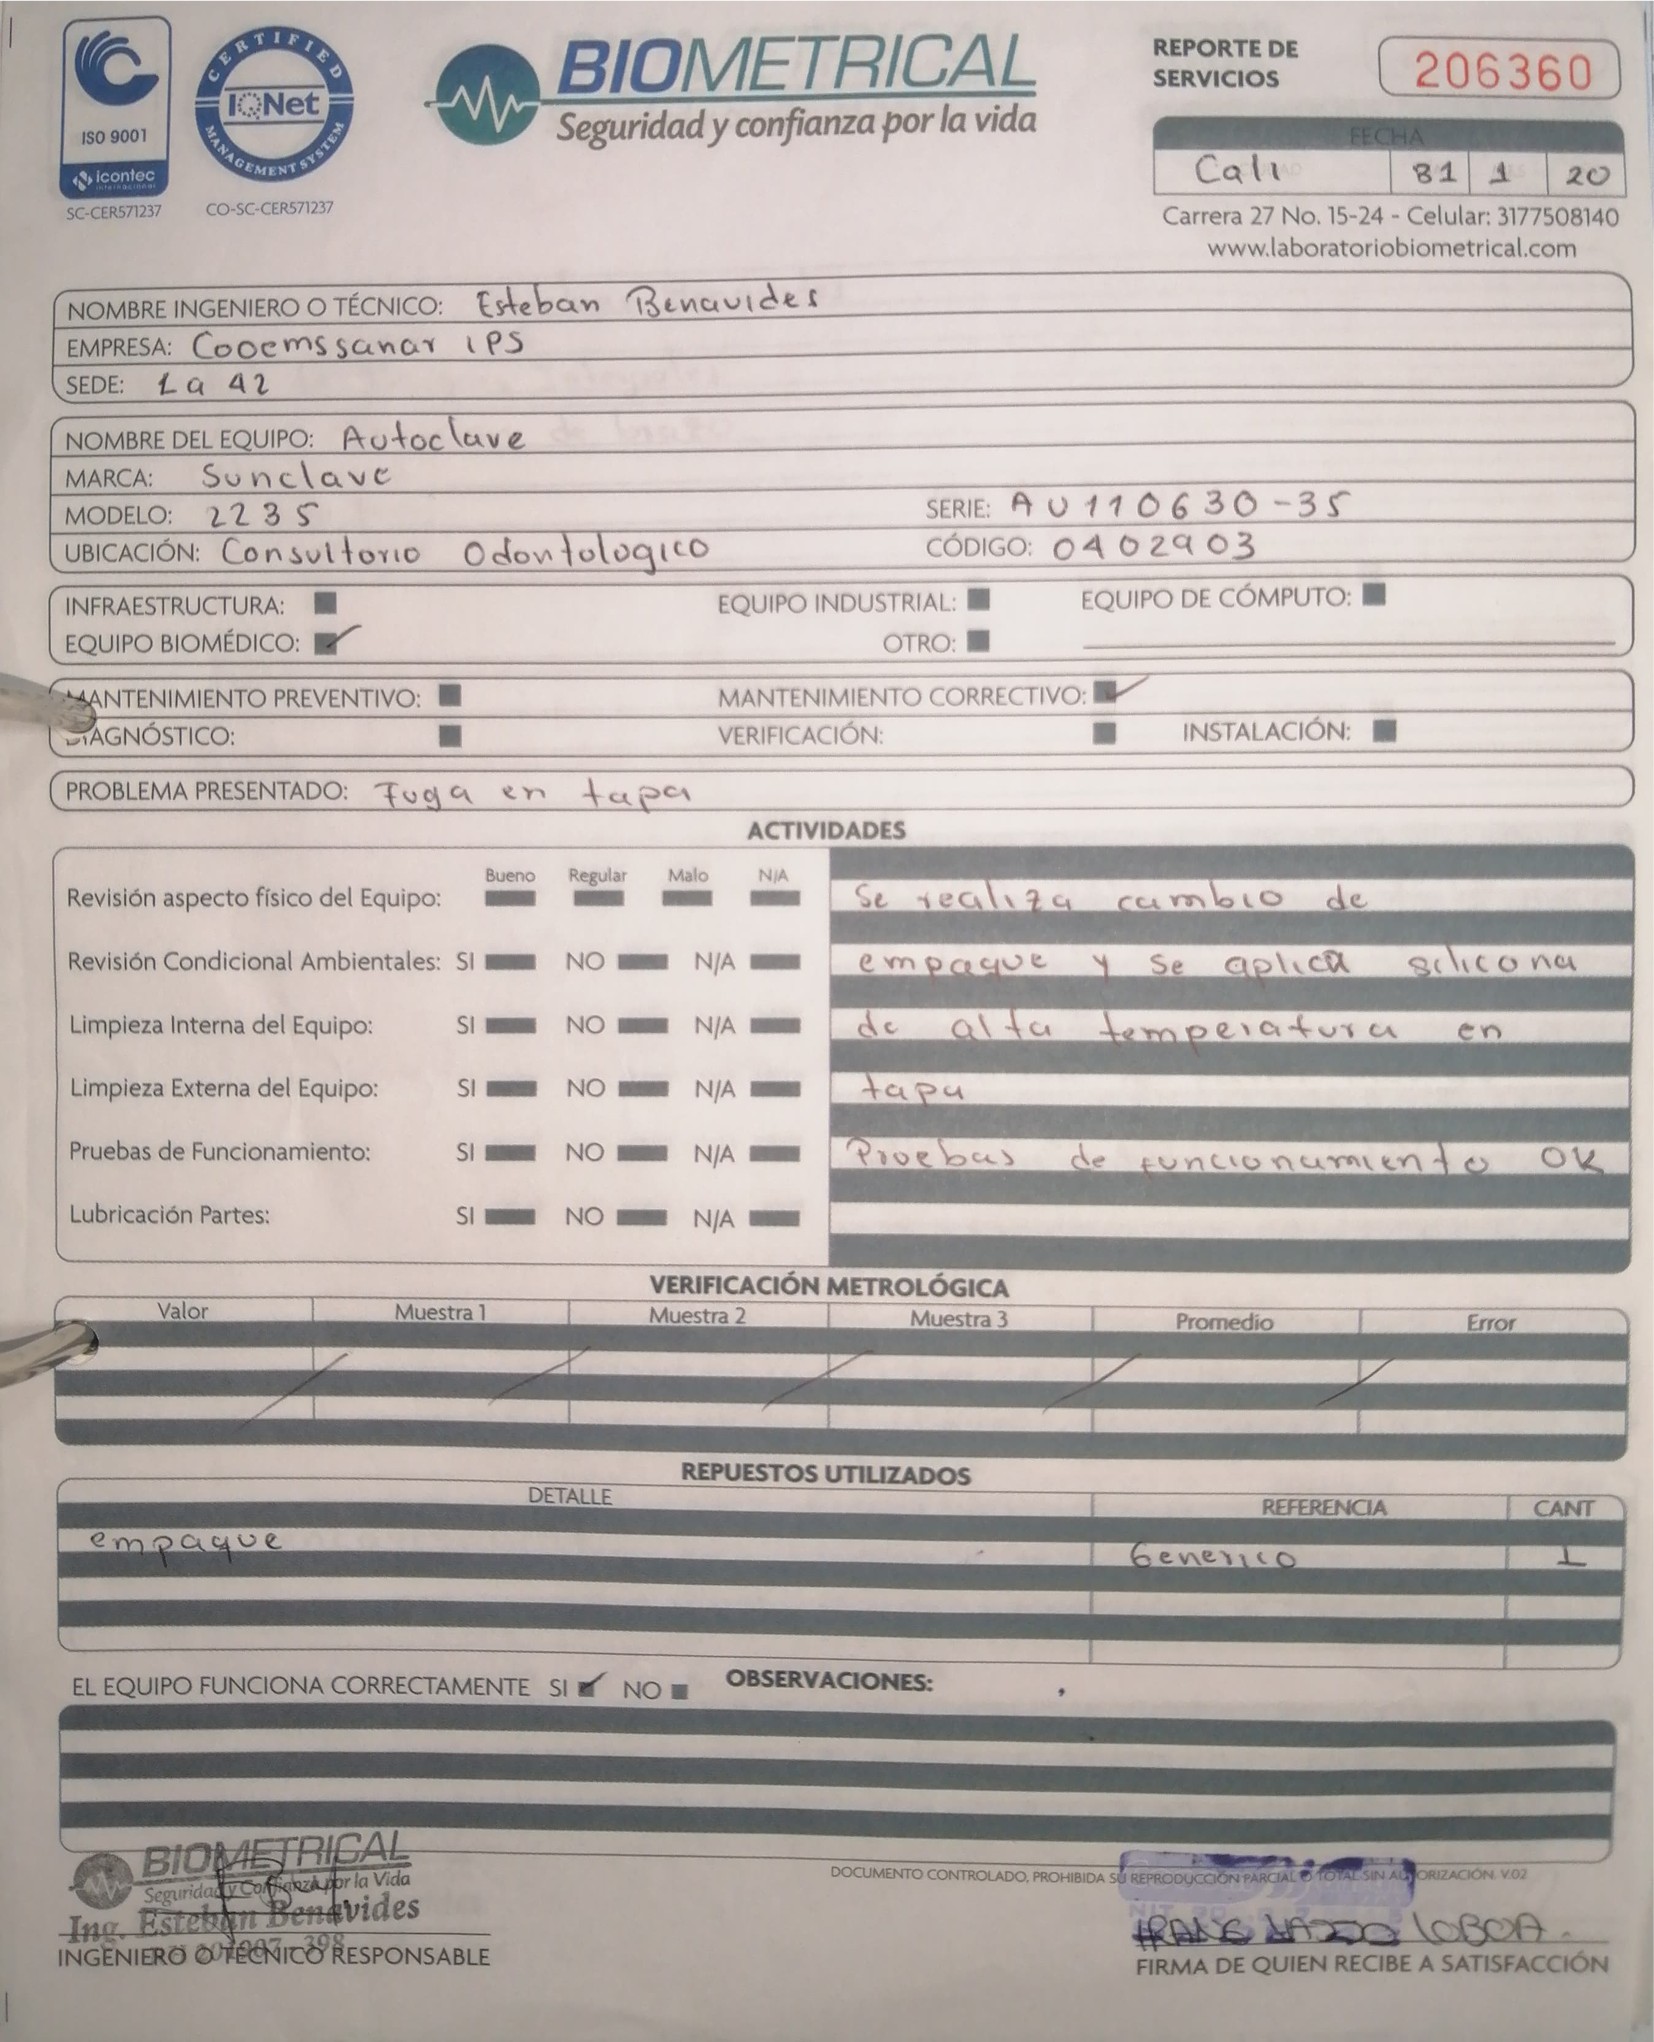 ISO 9001
icontec
internacional
SC-CER571237
CERTIFIED
IQNet
MANAGEMENT SYSTEM
CO-SC-CER571237
BIOMETRICAL
Seguridad y confianza por la vida
REPORTE DE
SERVICIOS
206360
FECHA
Cali 31 1 20
Carrera 27 No. 15-24 - Celular: 3177508140
www.laboratoriobiometrical.com
NOMBRE INGENIERO O TÉCNICO: Esteban Benavides
EMPRESA: Cooemssanar IPS
SEDE: La 42
NOMBRE DEL EQUIPO: Autoclave
MARCA: Sunclave
MODELO: 2235 SERIE: AU110630-35
UBICACIÓN: Consultorio Odontologico CÓDIGO: 0402903
INFRAESTRUCTURA: EQUIPO INDUSTRIAL: EQUIPO DE CÓMPUTO:
EQUIPO BIOMÉDICO: ✓ OTRO:
MANTENIMIENTO PREVENTIVO: MANTENIMIENTO CORRECTIVO: ✓
DIAGNÓSTICO: VERIFICACIÓN: INSTALACIÓN:
PROBLEMA PRESENTADO: Fuga en tapa
ACTIVIDADES
Bueno Regular Malo N/A
Revisión aspecto físico del Equipo: Se realiza cambio de
Revisión Condicional Ambientales: SI NO N/A empaque y se aplica silicona
Limpieza Interna del Equipo: SI NO N/A de alta temperatura en
Limpieza Externa del Equipo: SI NO N/A tapa
Pruebas de Funcionamiento: SI NO N/A Pruebas de funcionamiento OK
Lubricación Partes: SI NO N/A
VERIFICACIÓN METROLÓGICA
Valor Muestra 1 Muestra 2 Muestra 3 Promedio Error
REPUESTOS UTILIZADOS
DETALLE REFERENCIA CANT
empaque Generico 1
EL EQUIPO FUNCIONA CORRECTAMENTE SI ✓ NO OBSERVACIONES:
BIOMETRICAL
Seguridad y Confianza por la Vida
Ing. Esteban Benavides
INGENIERO O TÉCNICO RESPONSABLE
DOCUMENTO CONTROLADO, PROHIBIDA SU REPRODUCCIÓN PARCIAL O TOTAL SIN AUTORIZACIÓN. V.02
LOBOA
FIRMA DE QUIEN RECIBE A SATISFACCIÓN